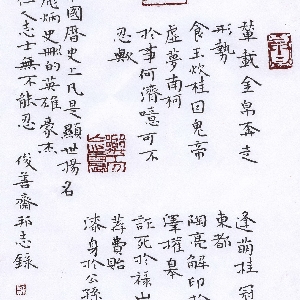 輦載金帛奔走
形勢
食玉炊桂因鬼帝
虛夢南柯
於事何濟噫可不
忍歟
逢萌桂冠
東都
陶亮解印於
澤權皋
詐死於祿山
莽費貽
漆身於公孫
國曆史上凡是顯世揚名
炳史冊的英雄豪杰
仁人志士無不能忍
俊善齋邦志錄